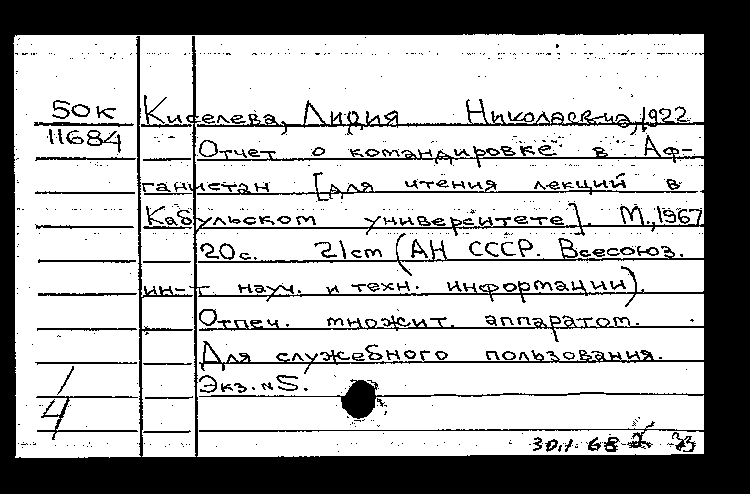 50К Киселева, Лидия Николаевна, 1922
11684
Отчет о командировке в Аф-
ганистан [для чтения лекций в
Кабульском университете]. М., 1967
20с. 21cm (АН СССР. Всесоюз.
ин-т науч. и техн. информации).
Отпеч. множит. аппаратом.
Для служебного пользования.
Экз. N5.
30.1.68